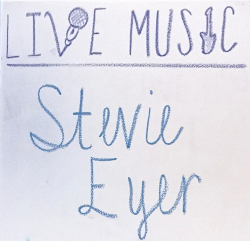 LIVE MUSIC
Stevie
Eyer